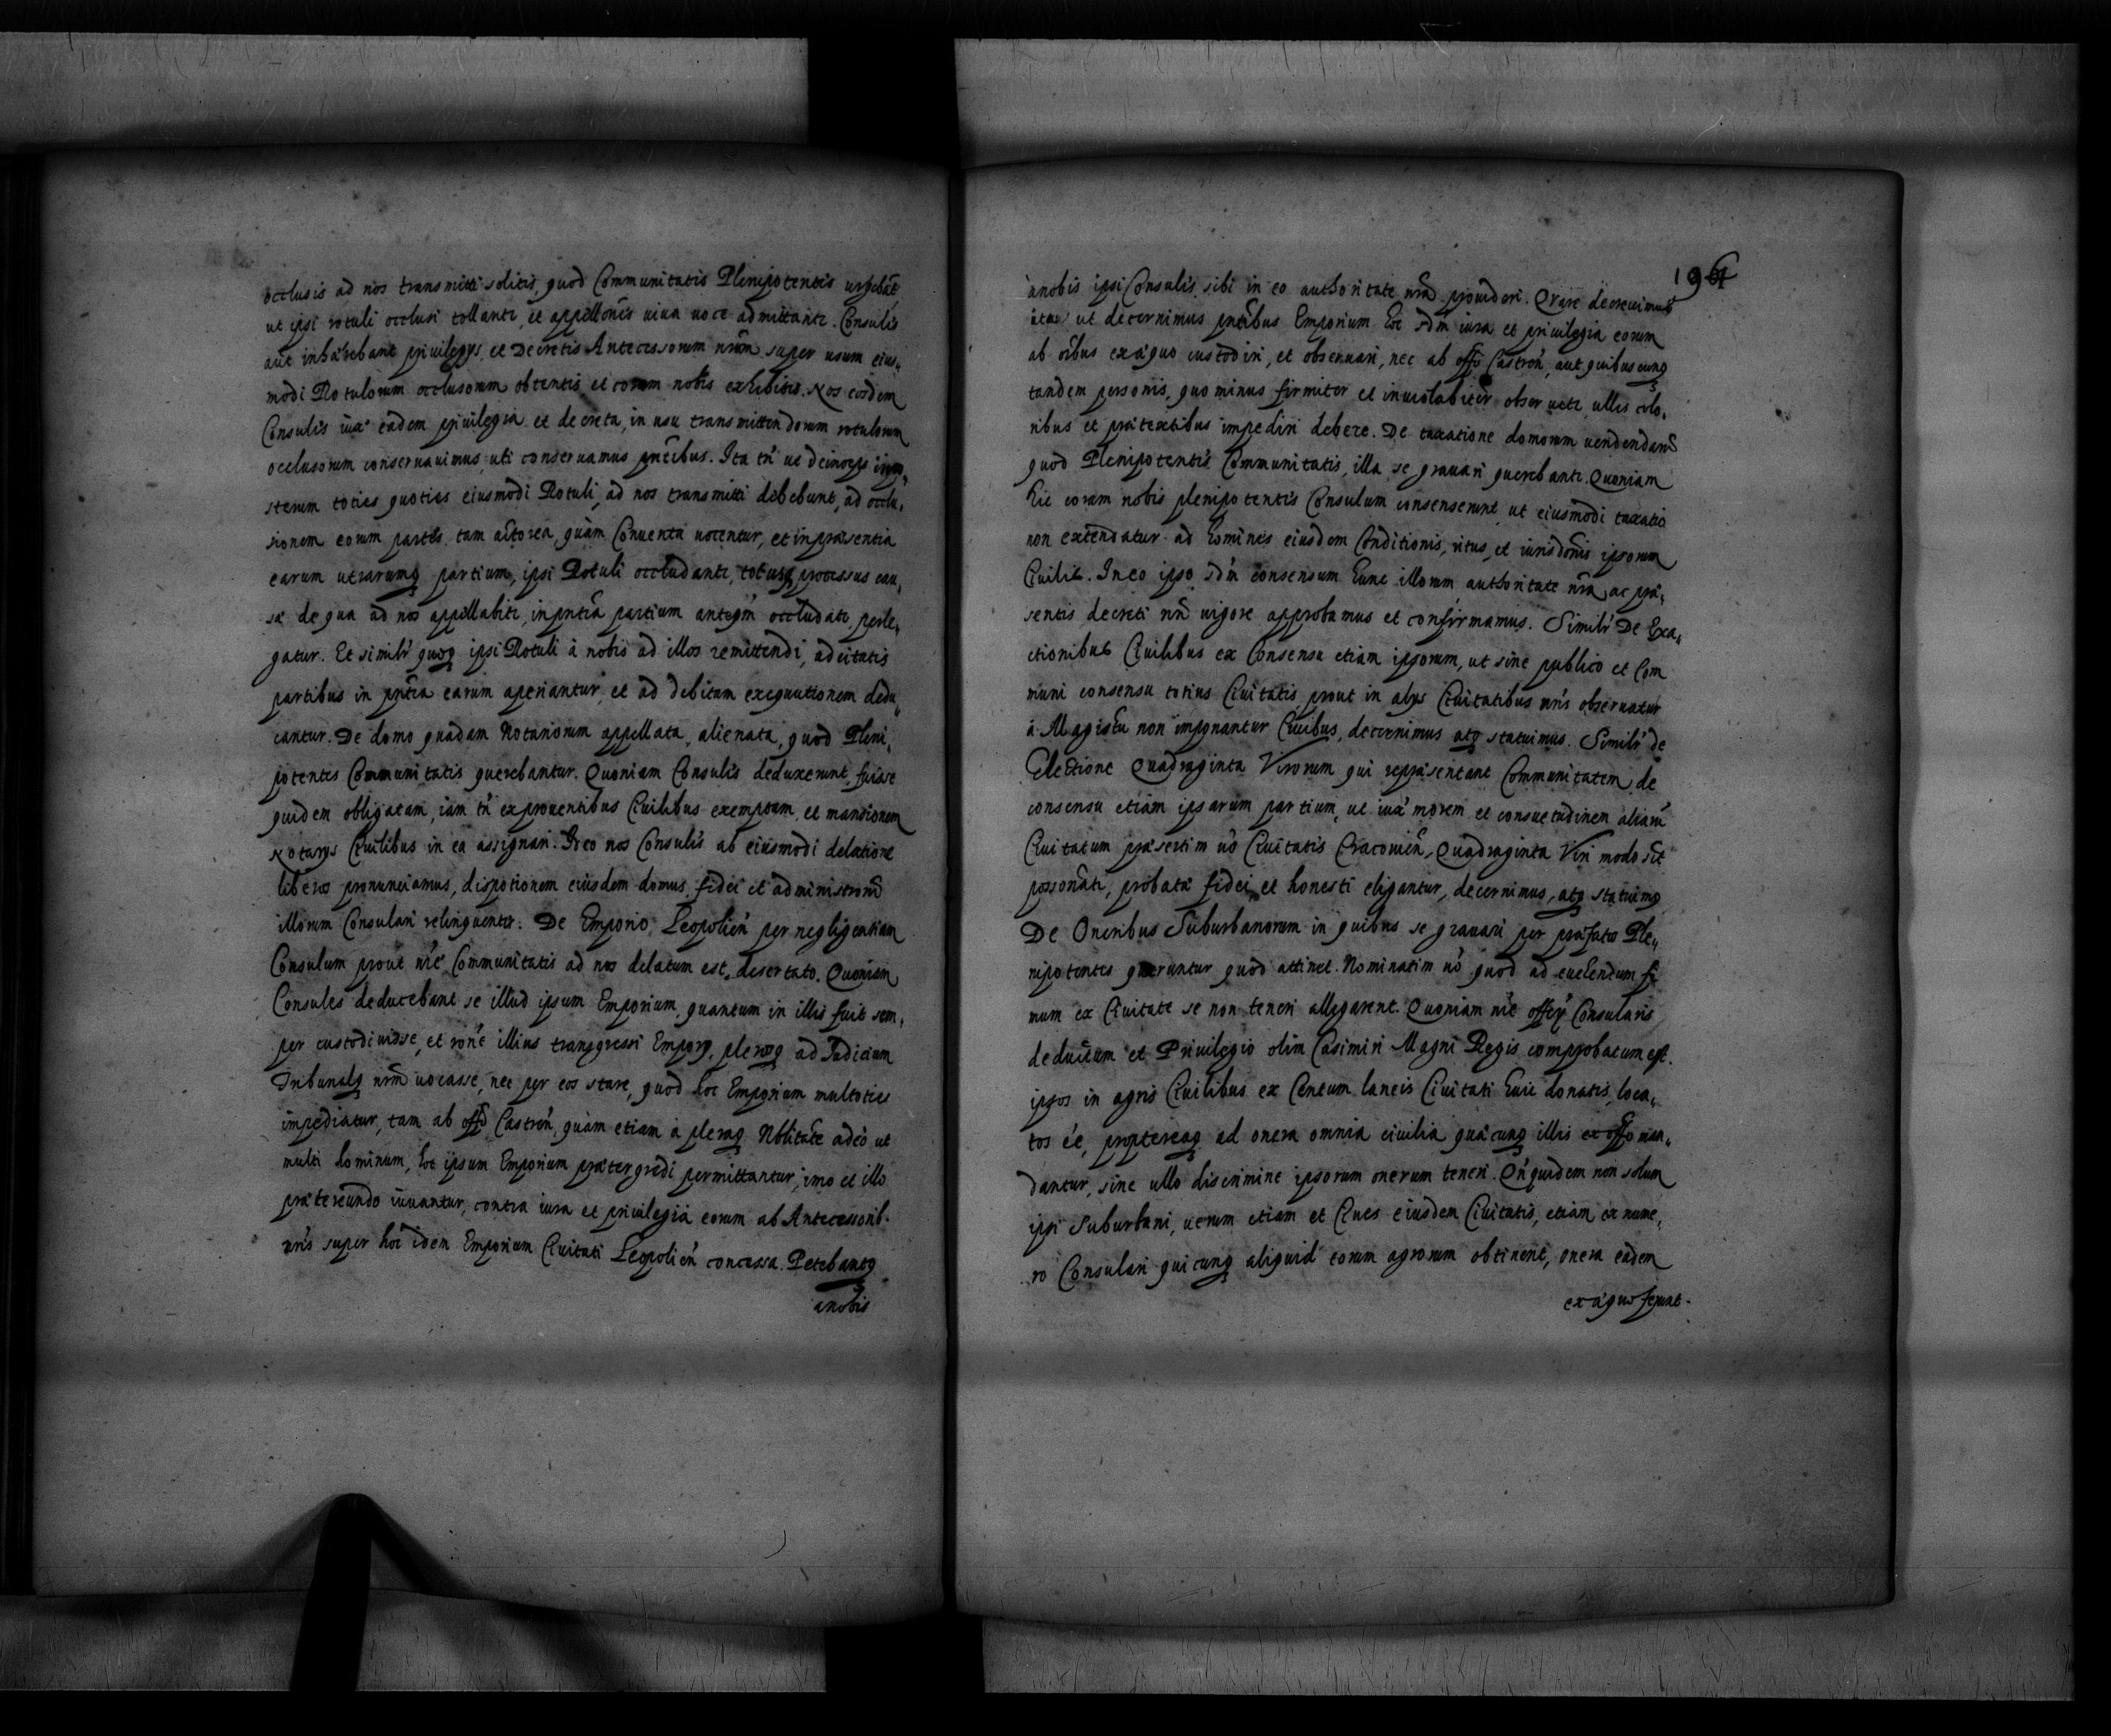 occlusis ad nos transmitti solitis, quod Communitatis Plenipotentes urgebāt
ut ipsi rotuli occlusi tollantr, et appellōnes viua uoce admittantr. Consules
aut inhærebant priuilegijs et Decretis Antecessorum nrōm super usum eius„
modi Rotulorum occlusorum obtentis et coram nobis exhibitis. Nos eosdem
Consules iuxˊ eadem priuilegia et decreta, in usu transmittendorum rotulorum
occlusorum conseruauimus, uti conseruamus pntibus. Ita tñ ut deinceps in
sterum toties quoties eiusmodi Rotuli, ad nos transmitti debebunt, ad occlu„
sionem eorum partes tam actorea, quàm Conuenta uocentur, et in præsentia
earum utrarumq partium, ipsi Rotuli occludantr, totusq processus cau„
sæ de qua ad nos appellabitr, in pntia partium anteqm̄ occludatr, perle„
gatur. Et similr quoq ipsi Rotuli à nobis ad illos remittendi, ad citatis
partibus in pntia earum aperiantur, et ad debitam exequutionem dedu„
cantur. De domo quadam Notariorum appellata, alienata, quod Pleni„
potentes Communitatis querebantur. Quoniam Consules deduxerunt, fuisse
quidem obligatam, iam tñ ex prouentibus Ciuilibus exemptam, et mansionem
Notarijs Ciuilibus in ea assignari. Ideo nos Consules ab eiusmodi delatione
liberos pronunciamus, dispotionem eiusdem domus, fidei et administroni
illorum Consulari relinquentes. De Emporio, Leopolieñ per negligentiam
Consulum prout nrē Communitatis ad nos delatum est, desertato. Quoniam
Consules deducebant se illud ipsum Emporium, quantum in illis fuit sem„
per custodiuisse, et ronē illius transgressi Emporij, pleroq ad Judicium
Tribunalq nrm̄ uocasse, nec per eos stare, quod hoc Emporium multoties
impediatur, tam ab offo Castreñ, quàm etiam à pleraq Nblitate adeò ut
multi hominum, hoc ipsum Emporium prætergredi permittantur, imo et illo
prætereundo iuuantur, contra iura et priuilegia eorum ab Antecessorib.
nris super hoc idem Emporium Ciuitati Leopolieñ concessa. Petebantq
anobis
196
ànobis ipsi Consules, sibi in eo authoritate nrā prouideri. Quare decreuimus
ut decernimus pntibus Emporium hoc scdm iura et priuilegia eorum
ab oībus exæquo custodiri, et obseruari, nec ab offo Castreñ, aut quibuscunq
tandem personis, quo minus firmiter et inuiolabiter obseruetr, ullis colo„
ribus et prætextibus impediri debere. De taxatione domorum uendendarū
quod Plenipotentes Communitatis, illa se grauari querebantr. Quoniam
hic coram nobis plenipotentes Consulum consenserunt, ut eiusmodi taxatio
non extendatur ad homines eiusdem Conditionis, ritus, et iurisdonis ipsorum
Ciuilis. In eo ipso scdm consensum hunc illorum authoritate nrā, ac præ„
sentis decreti nri uigore approbamus et confirmamus. Similr De Exa„
ctionibus Ciuilibus ex Consensu etiam ipsorum, ut sine publico et Com
muni consensu totius Ciuitatis, prout in alijs Ciuitatibus nris obseruatur
à Magistu non imponantur Ciuibus, decernimus atq statuimus. Similr de
Electione Quadraginta Virorum qui repræsentant Communitatem, de
consensu etiam ipsarum partium, ut iuxˊ morem et consuetudinem aliarū
Ciuitatum præsertim uò Ciuitatis Cracouień, Quadraginta Viri modo sint
possonati, probatæ fidei, et honesti eligantur, decernimus, atq statuimq
De Oneribus Suburbanorum in quibus se grauari per præfatos Ple„
nipotentes queruntur quod attinet. Nominatim uò quod ad euehendum fi
mum ex Ciuitate se non teneri allegarent. Quoniam nrē offey Consularis
deductum et Priuilegio olim Casimiri Magni Regis comprobatum est.
ipsos in agris Ciuilibus ex Centum laneis Ciuitati huic donatis, loca„
tos eē, proptereaq ad onera omnia ciuilia quæcunq illis ex offo man„
dantur, sine ullo discrimine ipsorum onerum teneri. Qñquidem non solum
ipsi Suburbani, uerum etiam et Ciues eiusdem Ciuitatis, etiam ex nume„
ro Consulari quicunq aliquid eorum agrorum obtinent, onera eadem
exæquo ferunt.